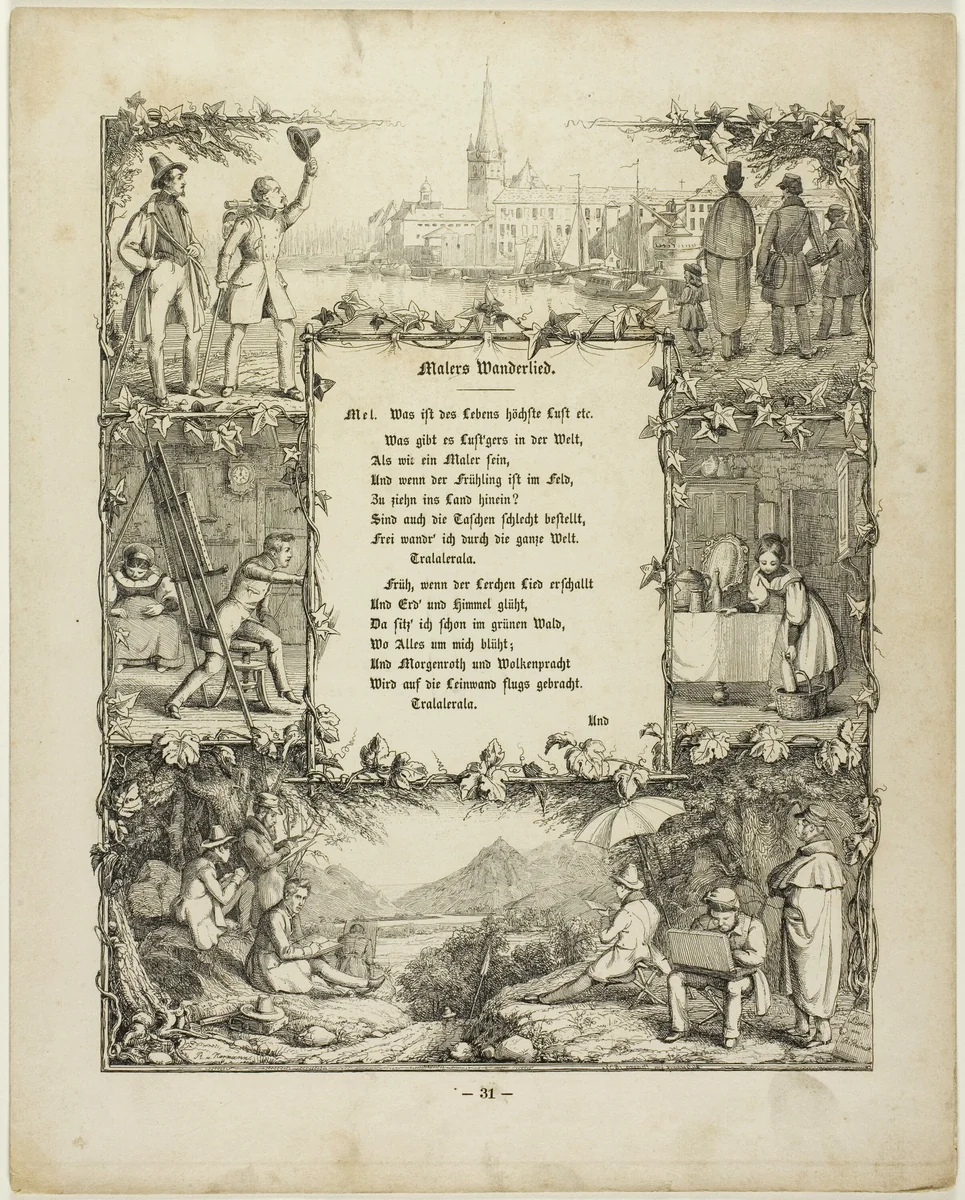 Malers Wanderlied.
Mel. Was ist des Lebens höchste Lust etc.
Was gibt es Lust'gers in der Welt,
Als wie ein Maler sein,
Und wenn der Frühling ist im Feld,
Zu ziehn ins Land hinein?
Sind auch die Taschen schlecht bestellt,
Frei wandr' ich durch die ganze Welt.
Tralalerala.
Früh, wenn der Lerchen Lied erschallt
Und Erd' und Himmel glüht,
Da sitz' ich schon im grünen Wald,
Wo Alles um mich blüht;
Und Morgenroth und Wolkenpracht
Wird auf die Leinwand flugs gebracht.
Tralalerala.
Und
— 31 —